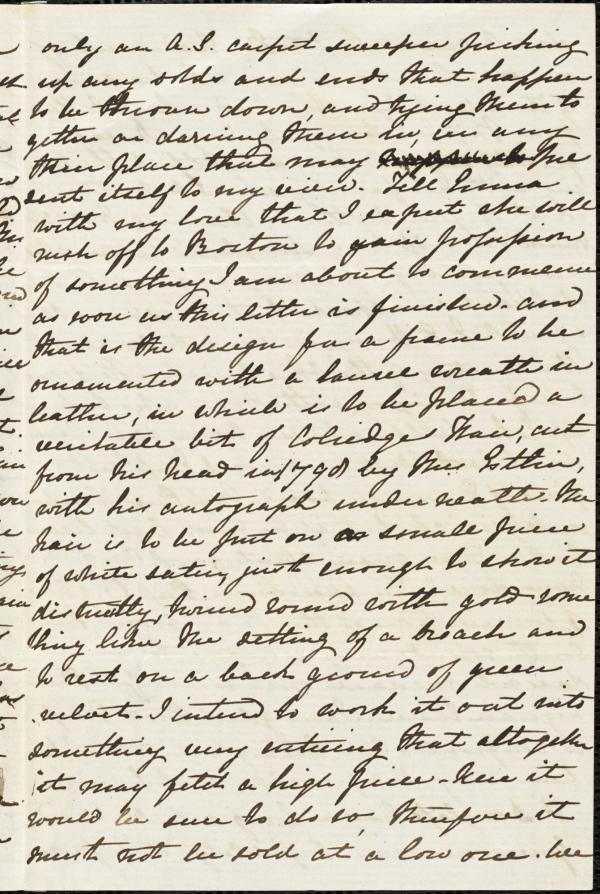 only an A.S. carpet sweeper picking
up any odds and ends that happen
to be thrown down, and tying them to
gether or darning them in, in any
thin place that may pre
sent itself to my view. Tell Emma
with my love that I expect she will
rush off to Boston to gain possession
of something I am about to commence
as soon as this letter is finished. and
that is the design for a frame to be
ornamented with a laurel wreath in
leather, in which is to be placed a
veritable bit of Coliedge's Hair, cut
from his head in 1798 by Mrs Estlin,
with his autograph underneath. The
hair is to be put on a small piece
of white satin, just enough to show it
distinctly, twined round with gold some
thing like the setting of a broach and
to rest on a back ground of green
velvet. I intend to work it out into
something very enticing that altogether
it may fetch a high price. Here it
would be sure to do so, therefore it
must not be sold at a low one. We